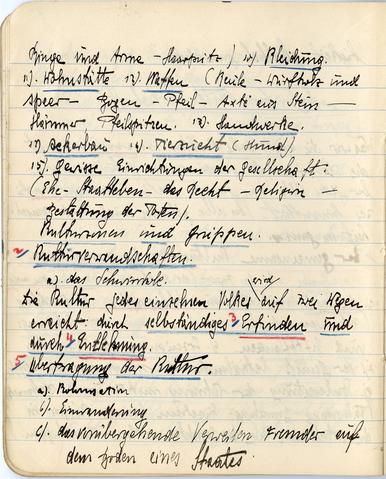 Ringe und Arme – Haarputz / 10). Kleidung.
11). Wohnstätte 12). Waffen (Keule – Wurfholz und
Speer – Bogen – Pfeil – Axte aus Stein –
Hämmer Pfeilspitzen. 13). Handwerke.
14) Ackerbau 14. Tierzucht (Hund)
15). gewisse Einrichtungen der Gesellschaft
(Ehe – Staatleben – das Recht – Religion –
Bestattung der Toten).
Kulturzonen und gruppen.
2. Kulturverwandschaften.
a). das
Die Kultur jedes einzelnen Volkes wird auf zwei Wegen
erreicht durch selbständiges 3 Erfinden und
durch 4 Entlehnung.
5 Übertragung der Kultur.
a).
b). Einwanderung
c). das vorübergehende Verweilen Fremder auf
dem Boden eines Staates.